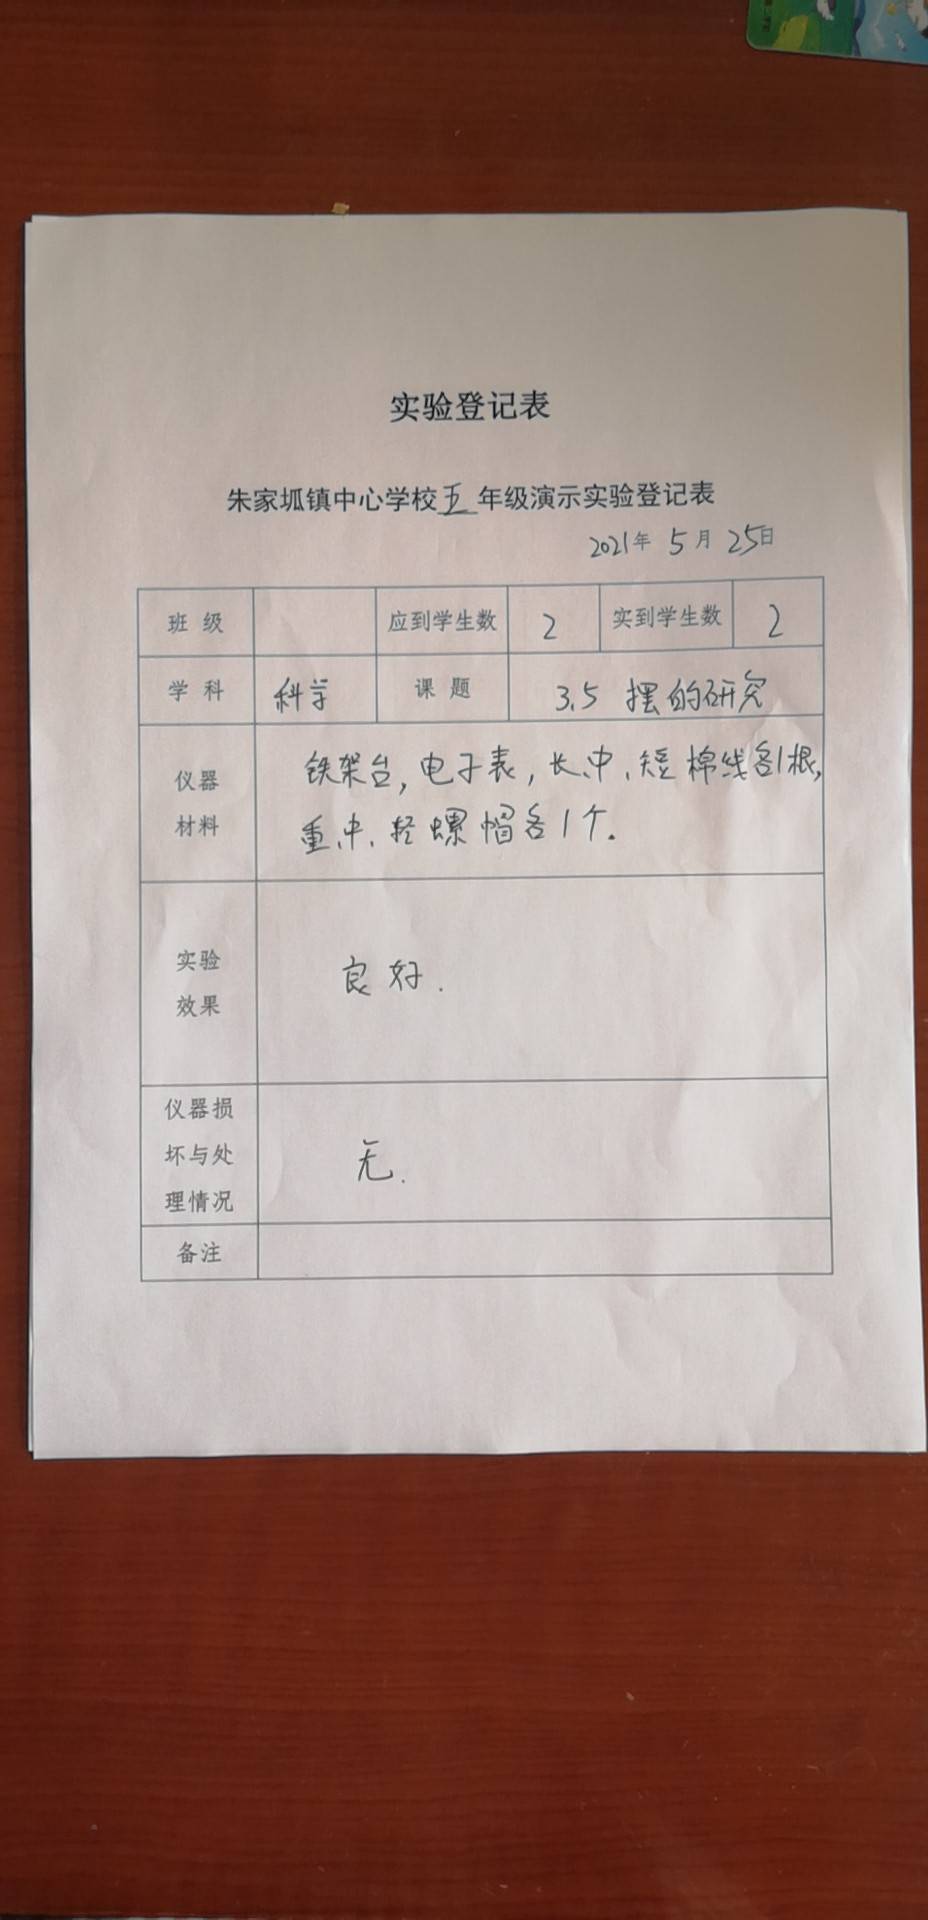 实验登记表
朱家坬镇中心学校五年级演示实验登记表
2021年 5月 25日
班 级 应到学生数 2 实到学生数 2
学 科 科学 课 题 3.5 摆的研究
仪器
材料
铁架台，电子表，长、中、短棉线各1根，
重、中、轻螺帽各1个.
实验
效果
良好.
仪器损
坏与处
理情况
无.
备注